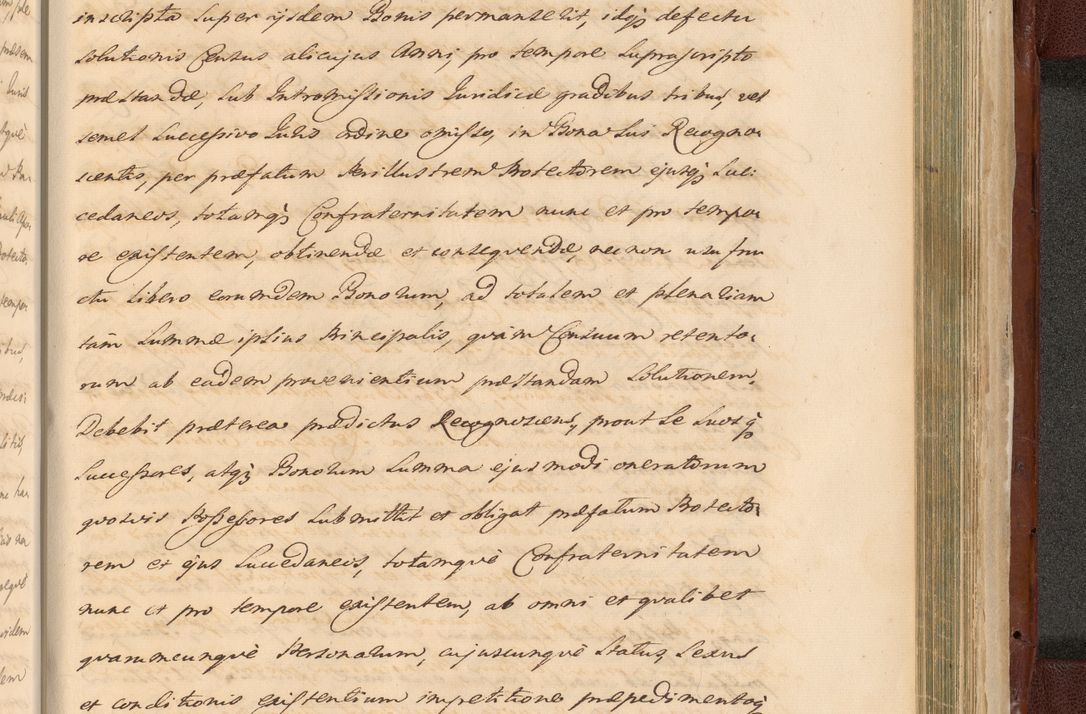 inscripta super ijsdem Bonis permanserit, idq; defectu
solutionis Census alicujus Anni, pro tempore suprascripto
præstandæ, sub Intromissionis Juridicæ gradibus tribus, vel
semel successivo Juris ordine omisso, in Bona sui Recogno-
scentis, per præfatum Perillustrem Protectorem ejusq; Suc:
cedaneos, totamq; Confraternitatem nunc et pro tempo-
re existentem, obtinendæ et consequendæ, necnon usufru
ctu libero eorumdem Bonorum, ad totalem et plenariam
tàm Summæ ipsius Principalis, quàm Censuum retento-
rum ab eadem provenientium præstandam Solutionem,
Debebit præterea prædictus Recognoscens, prout se suosq;
Successores, atq; Bonorum Summa ejusmodi oneratorum
quosvis Possessores submittit et obligat præfatum Protecto-
rem et ejus Succedaneos, totamquè Confraternitatem
nunc et pro tempore existentem, ab omni et qvalibet
qvarumcunquè Personarum, cujuscunquè Status, Sexus
et conditionis existentium impetitione præpedimentoq;